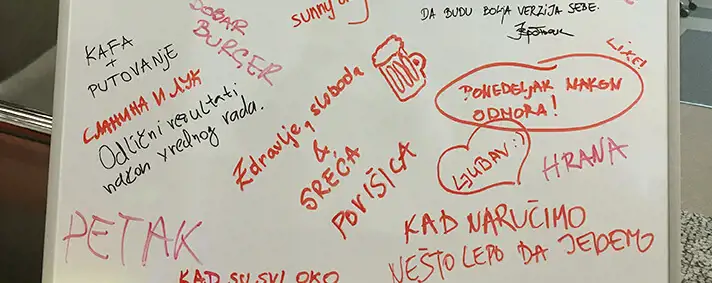 DOBAR
BURGER
sunny
DA BUDU BOLJA VERZIJA SEBE.
KAFA
+
PUTOVANJE
СЛАНИНА И ЛУК
Odlični rezultati
nakon vrednog rada.
Zdravlje, sloboda
&
SREĆA
POVIŠICA
LIKE!
PONEDELJAK NAKON
ODMORA!
LJUBAV :)
HRANA
PETAK
KAD NARUČIMO
NEŠTO LEPO DA JEDEMO
KAD SU SVI OKO